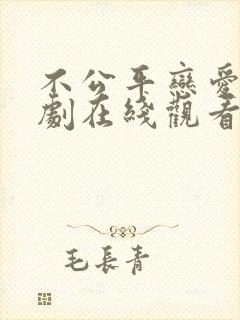 不公平戀愛
劇在綫觀看
毛長青